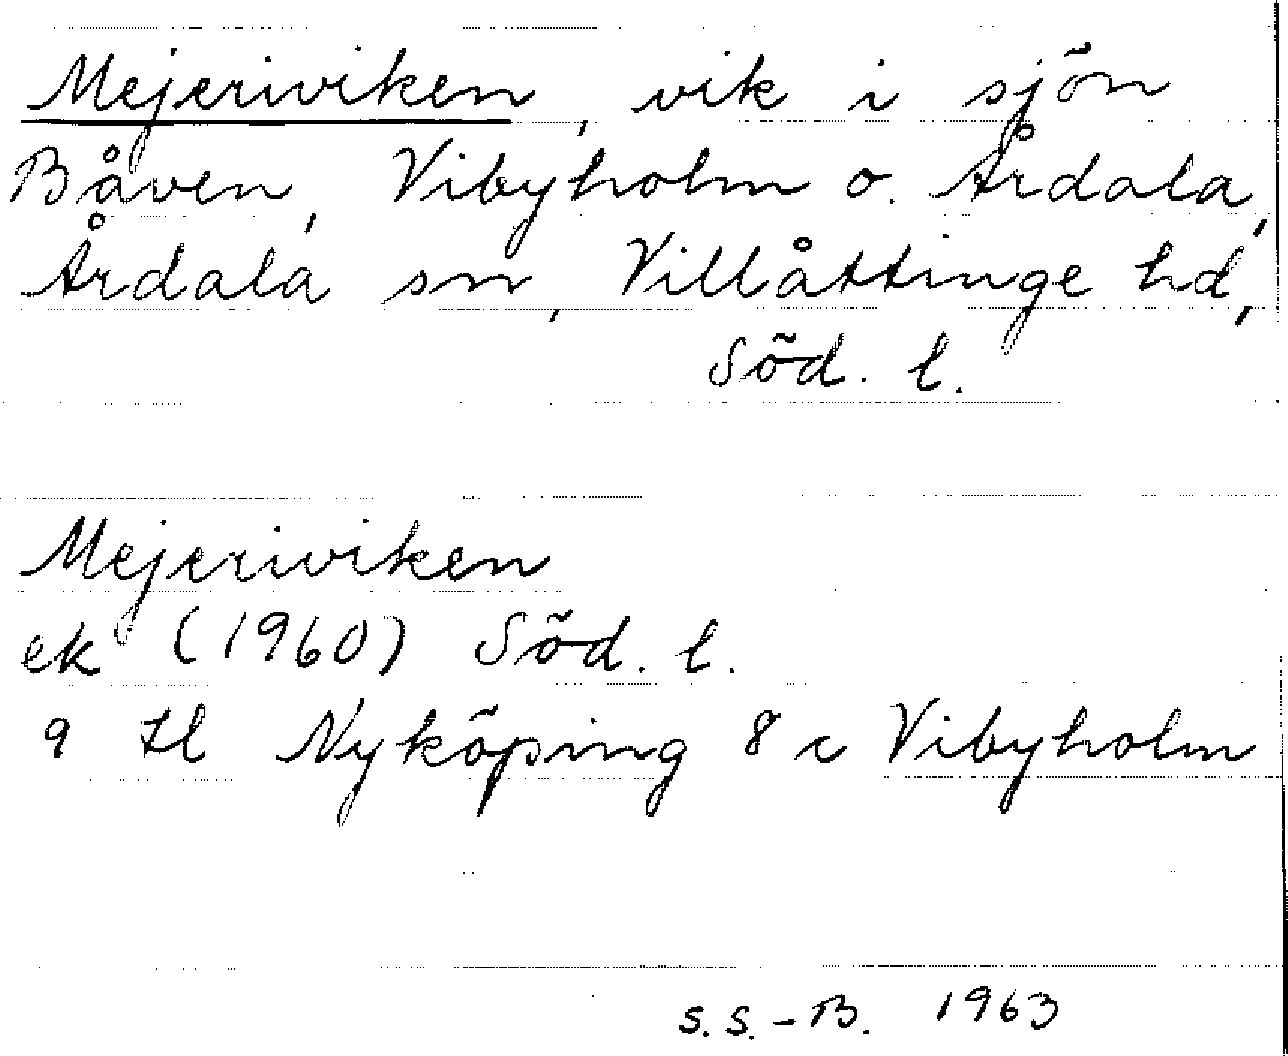 Mejeriviken, vik i sjön
Båven, Vibyholm o. Årdala,
Årdala sn, Villåttinge hd,
Söd. l.
Mejeriviken
ek (1960) Söd. l.
9 H Nyköping 8 c Vibyholm
S.S.-B. 1963